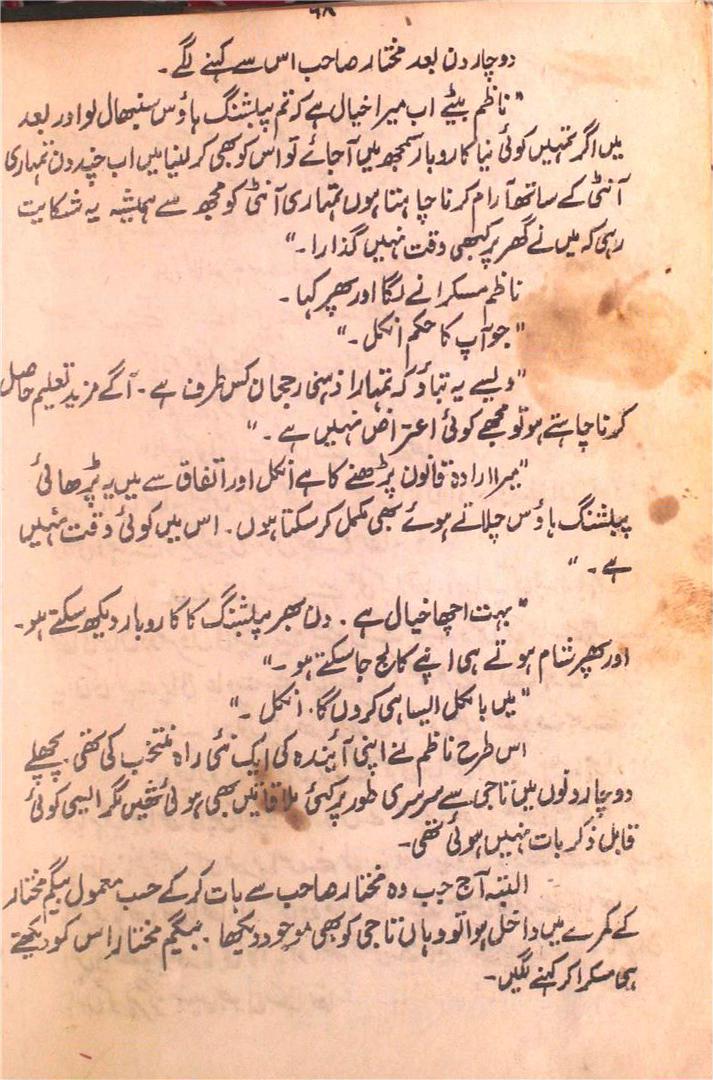 ۶۸
دو چار دن بعد مختار صاحب اس سے کہنے لگے۔
"ناظم بیٹے اب میرا خیال ہے کہ تم پبلشنگ ہاؤس سنبھال لو اور بعد
میں اگر تمہیں کوئی نیا کاروبار سمجھ میں آجائے تو اس کو بھی کر لینا میں اب چند دن تمہاری
آنٹی کے ساتھ آرام کرنا چاہتا ہوں تمہاری آنٹی کو مجھ سے ہمیشہ یہ شکایت
رہی کہ میں نے گھر پر کبھی وقت نہیں گذارا۔"
ناظم مسکرانے لگا اور پھر کہا۔
"جو آپ کا حکم انکل۔"
"ویسے یہ بتاؤ کہ تمہارا ذہنی رجحان کس طرف ہے۔ آگے مزید تعلیم حاصل
کرنا چاہتے ہو تو مجھے کوئی اعتراض نہیں ہے۔"
"میرا ارادہ قانون پڑھنے کا ہے انکل اور اتفاق سے میں یہ پڑھائی
پبلشنگ ہاؤس چلاتے ہوئے بھی مکمل کر سکتا ہوں۔ اس میں کوئی دقت نہیں
ہے۔"
"بہت اچھا خیال ہے۔ دن بھر پبلشنگ کا کاروبار دیکھ سکتے ہو۔
اور پھر شام ہوتے ہی اپنے کالج جا سکتے ہو۔"
"میں بالکل ایسا ہی کروں گا۔ انکل۔"
اس طرح ناظم نے اپنی آئیندہ کی ایک نئی راہ منتخب کی تھی۔ پچھلے
دو چار دنوں میں تاجی سے سرسری طور پر کئی ملاقاتیں بھی ہوئی تھیں مگر ایسی کوئی
قابل ذکر بات نہیں ہوئی تھی۔
البتہ آج جب وہ مختار صاحب سے بات کر کے حسب معمول بیگم مختار
کے کمرے میں داخل ہوا تو وہاں تاجی کو بھی موجود دیکھا۔ بیگم مختار اس کو دیکھتے
ہی مسکرا کر کہنے لگیں۔